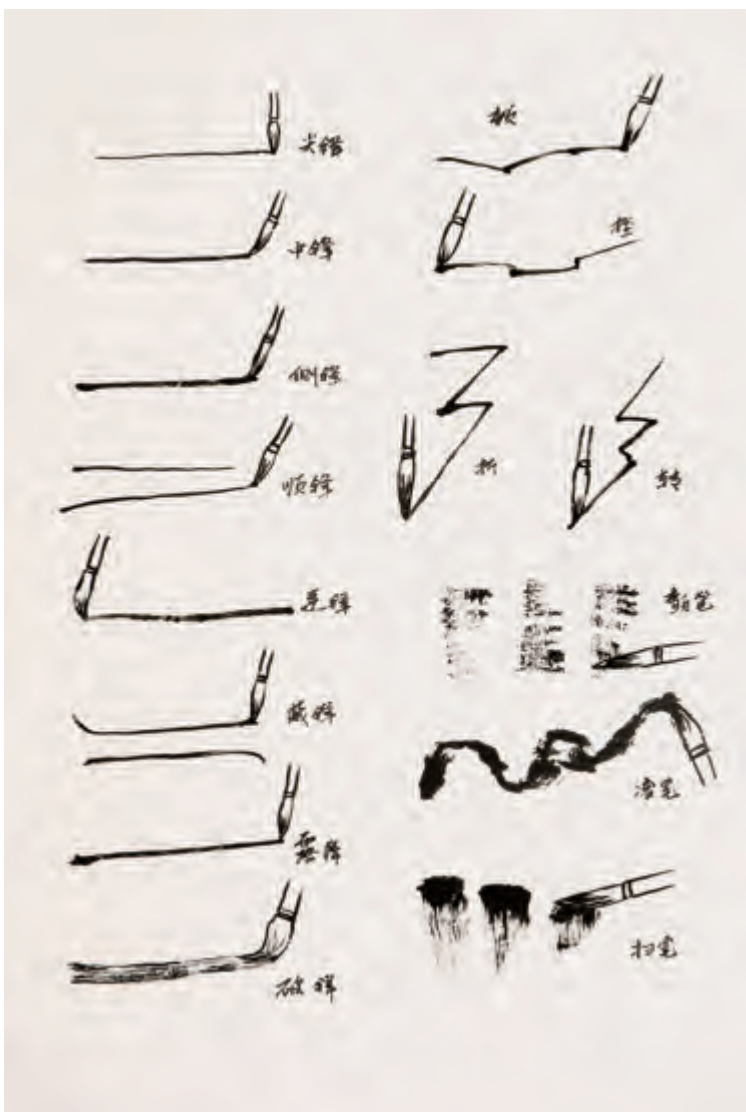 尖锋
中锋
侧锋
顺锋
逆锋
藏锋
露锋
破锋
顿
挫
折
转
滚笔
扫笔